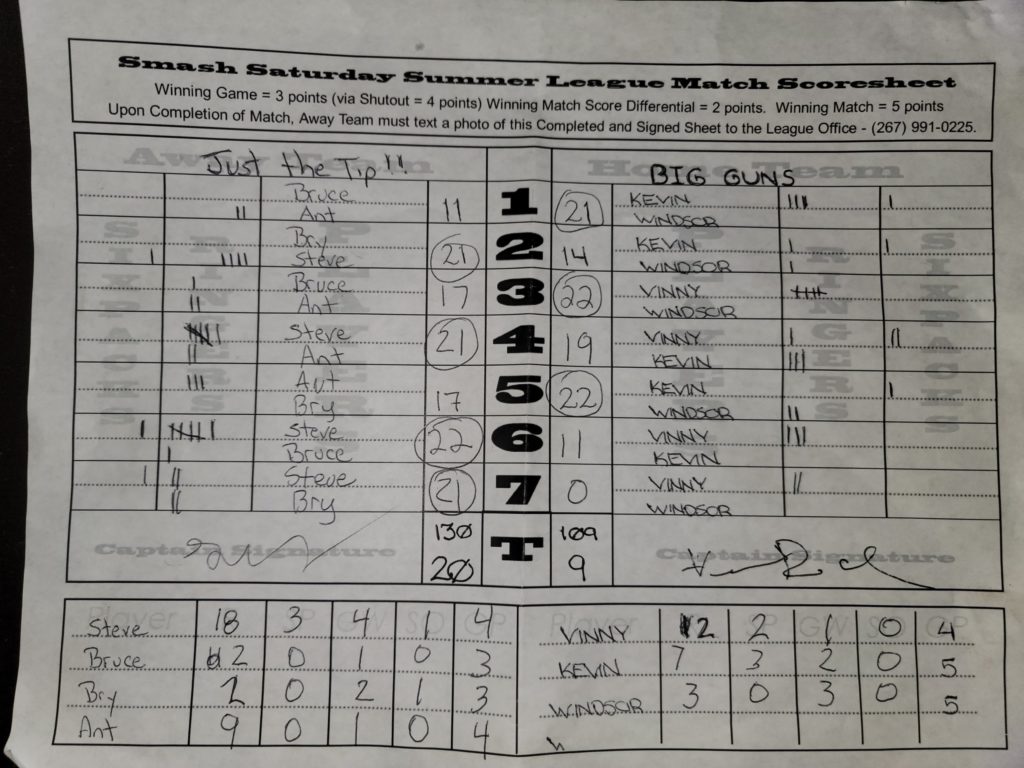 Smash Saturday Summer League Match Scoresheet
Winning Game = 3 points (via Shutout = 4 points) Winning Match Score Differential = 2 points. Winning Match = 5 points
Upon Completion of Match, Away Team must text a photo of this Completed and Signed Sheet to the League Office - (267) 991-0225.
Away Team Home Team
Just the Tip!! BIG GUNS
Bruce 11 1 21 KEVIN
Ant WINDSOR
Bry 21 2 14 KEVIN
Steve WINDSOR
Bruce 17 3 22 VINNY
Ant WINDSOR
Steve 21 4 19 VINNY
Ant KEVIN
Ant 17 5 22 KEVIN
Bry WINDSOR
Steve 22 6 11 VINNY
Bruce KEVIN
Steve 21 7 0 VINNY
Bry WINDSOR
SIXPACKS RINGERS PLAYERS PLAYERS RINGERS SIXPACKS
130 T 109
Captain Signature 20 9 Captain Signature
Player SP GW SO GP Player SP GW SO GP
Steve 18 3 4 1 4 VINNY 12 2 1 0 4
Bruce 2 0 1 0 3 KEVIN 7 3 2 0 5
Bry 2 0 2 1 3 WINDSOR 3 0 3 0 5
Ant 9 0 1 0 4